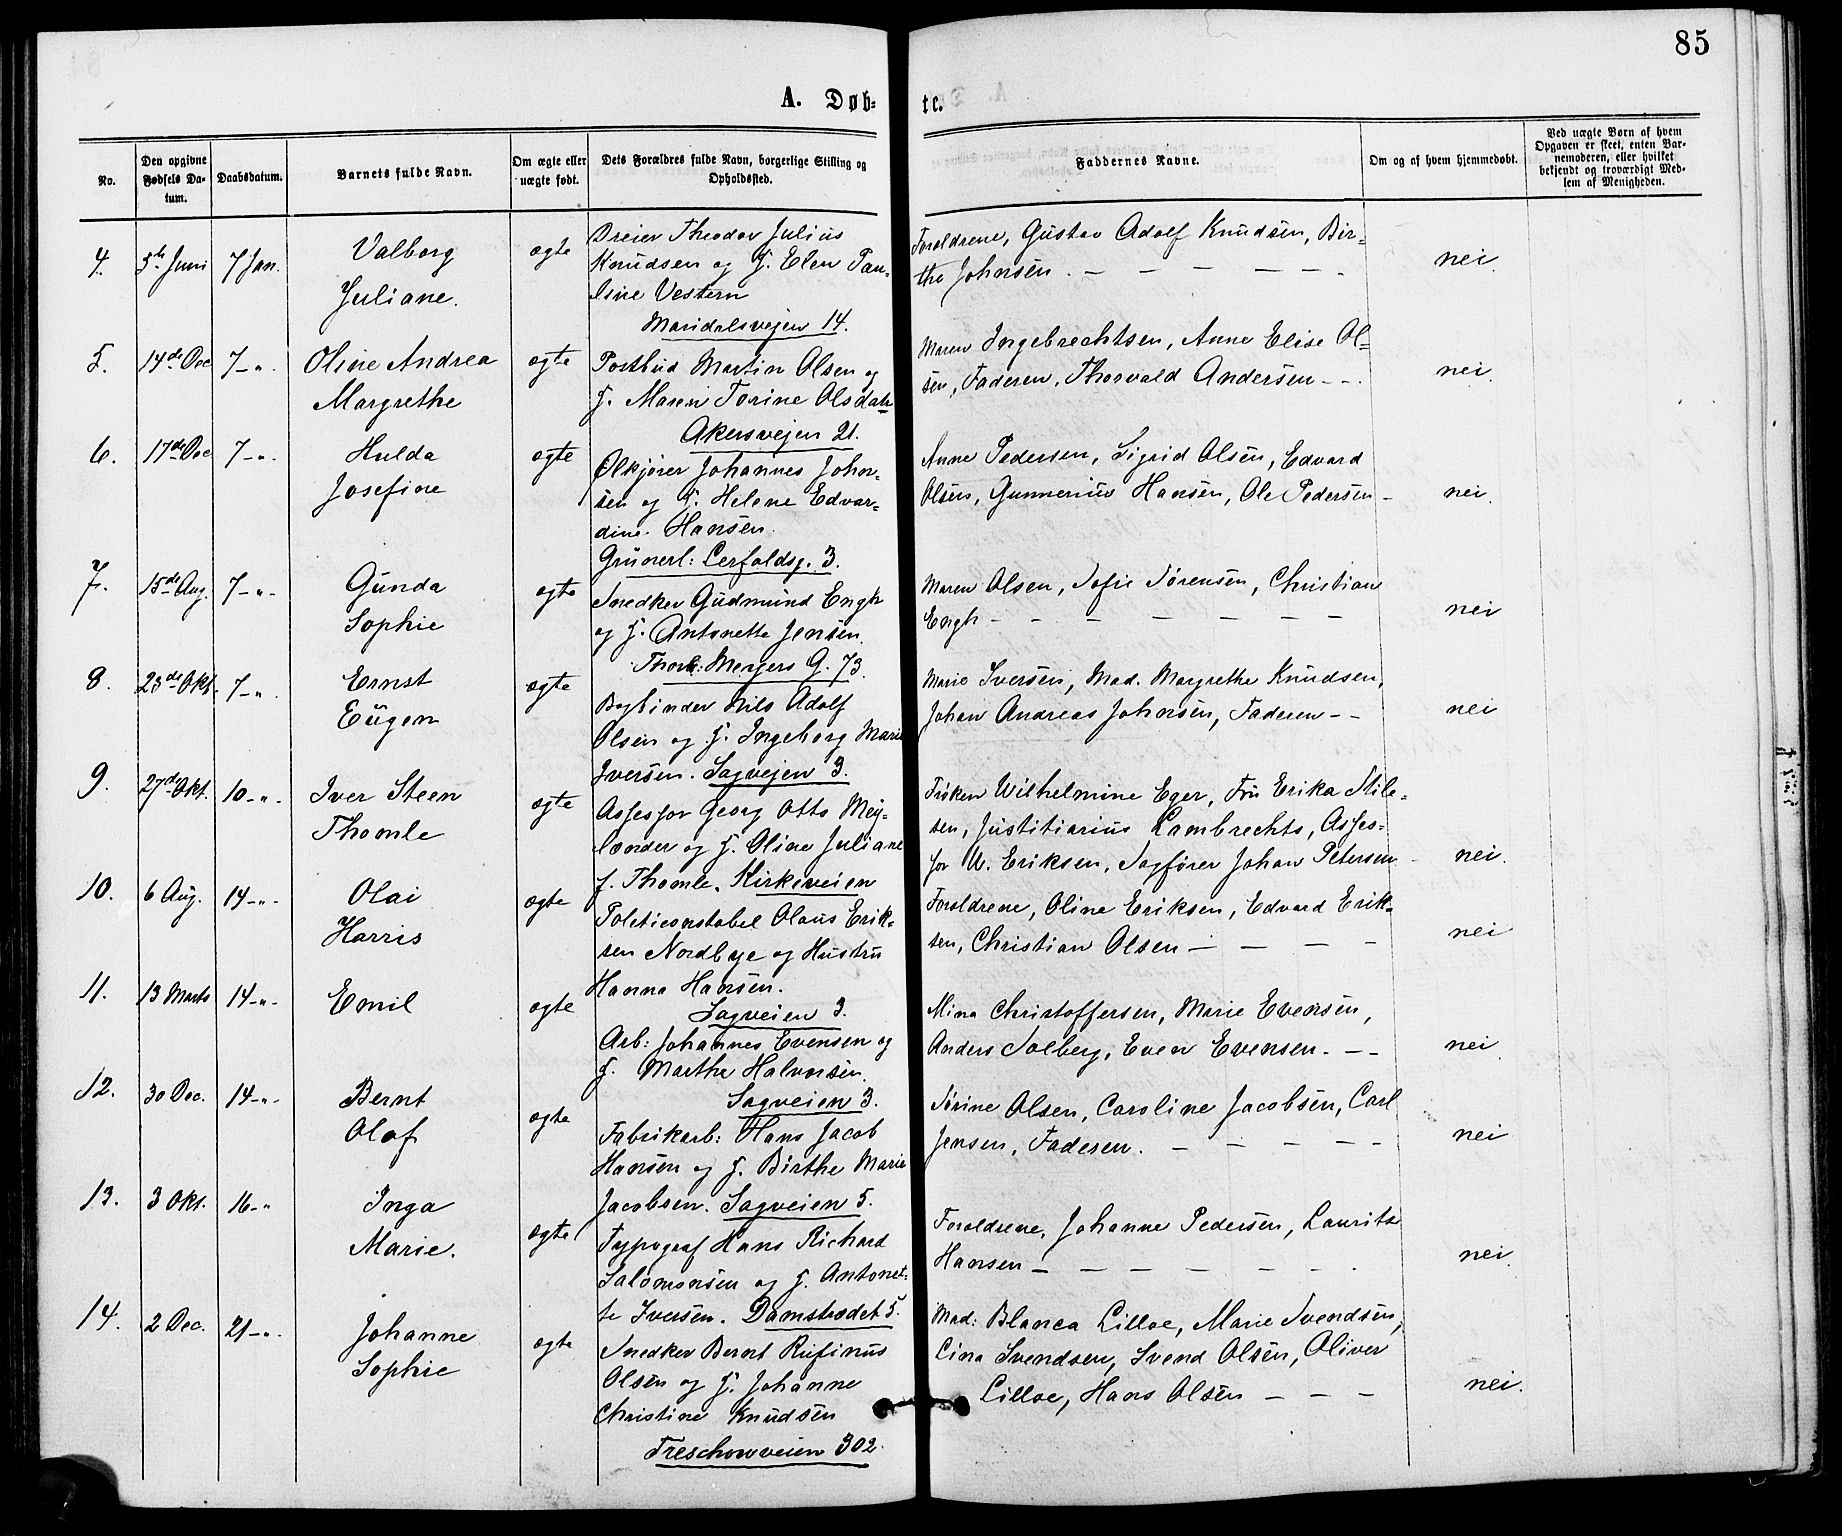 85
A. Døb-
te.
No.
Den opgivne Fødsels Da-
tum.
Daabsdatum.
Barnets fulde Navn.
Om ægte eller
uægte født.
Dets Forældres fulde Navn, borgerlige Stilling og
Opholdssted.
Faddernes Navne.
Om og af hvem hjemmedøbt.
Ved uægte Børn af hvem
Opgaven er skeet, enten Bar-
nemoderen, eller hvilket
bekjendt og troværdigt Med-
lem af Menigheden.
4. 5te Juni 7 Jan.
Valborg
Juliane.
ægte
Dreier Theodor Julius
Knudsen og H. Elen Pau-
line Vestern
Maridalsvejen 14.
Forældrene, Gustav Adolf Knudsen, Bir-
the Johnsen. — — — — — —
nei.
5. 14de Dec 7-"-
Oline Andrea
Margrethe
ægte
Postbud Martin Olsen og
H. Maren Torine Olsdatr
Akersvejen 21.
Maren Ingebrechtsen, Anne Elise Ol-
sen, Faderen, Thorvald Andersen - -
nei.
6. 17de Dec 7-"-
Hulda
Josefine
ægte
Ølkjører Johannes John-
sen og H. Helene Edvar-
dine. Hansen.
Grünerl: 3.
Anne Pedersen, Sigrid Olsen, Edvard
Olsen, Gunnerius Hansen, Ole Pedersen -
nei.
7. 15de Aug. 7-"-
Gunda
Sophie
ægte
Snedker Gudmund Engh
og H. Antonette Jensen.
Thorv: Meyers G. 73.
Maren Olsen, Sofie Sørensen, Christian
Engh - — — — — — —
nei
8. 23de Okt. 7-"-
Ernst
Eugen
ægte
Bogbinder Nils Adolf
Olsen og H. Ingeborg Marie
Iversen. Sagvejen 3.
Marie Iversen, Mad. Margrethe Knudsen,
Johan Andreas Johnsen, Faderen - -
nei
9. 27de Okt. 10-"-
Iver Steen
Thomle
ægte
Assessor Georg Otto Mey-
lænder og H. Oline Juliane
f. Thomle. Kirkeveien
Frøken Wilhelmine Eger, Fru Erika Stile-
sen, Justitiarius Lambrechts, Asses-
sor W. Eriksen, Sagfører Johan Petersen -
nei.
10. 6 Aug. 14-"-
Olai
Harris
ægte
Politiconstabel Olaus Erik-
sen Nordbye og Hustru
Hanna Hansen.
Sagveien 3.
Forældrene, Oline Eriksen, Edvard Erik-
sen, Christian Olsen — — — —
nei
11. 13 Marts 14-"-
Emil
ægte
Arb: Johannes Evensen og
H. Marthe Halvorsen.
Sagveien 3.
Mina Christoffersen, Marie Evensen,
Anders Solberg, Even Evensen. - -
nei
12. 30 Dec. 14-"-
Bernt
Olaf
ægte
Fabrikarb: Hans Jacob
Hansen og H. Birthe Marie
Jacobsen. Sagveien 5.
Sørine Olsen, Caroline Jacobsen, Carl
Jensen, Faderen. — — — — —
nei
13. 3 Okt. 16-"
Inga
Marie.
ægte
Typograf Hans Richard
Salomonsen og H. Antonet-
te Iversen. Damstrædet 5.
Forældrene, Johanne Pedersen, Lauritz
Hansen — — — — — — —
nei.
14. 2 Dec. 21-"-
Johanne
Sophie
ægte
Snedker Bernt Rufinus
Olsen og H. Johanne
Christine Knudsen
Treschowveien 302.
Mad: Blanca Lilloe, Marie Svendsen,
Lina Svendsen, Svend Olsen, Oliver
Lilloe, Hans Olsen — — —
nei.